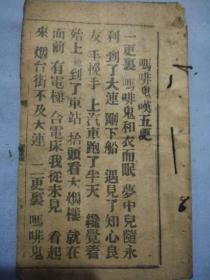 嗎啡鬼嘆五更
一更裏 嗎啡鬼和衣而眠 夢中兒隨永
利 到了大連 剛下船 遇見了知心良
友 手挽手 上汽車跑了半天 纔覺着
始上 到了車站 抬頭看大樓 就在
面前 有電梯 合電床我從未見 看起
來 烟台街不及大連 二更裏 嗎啡鬼